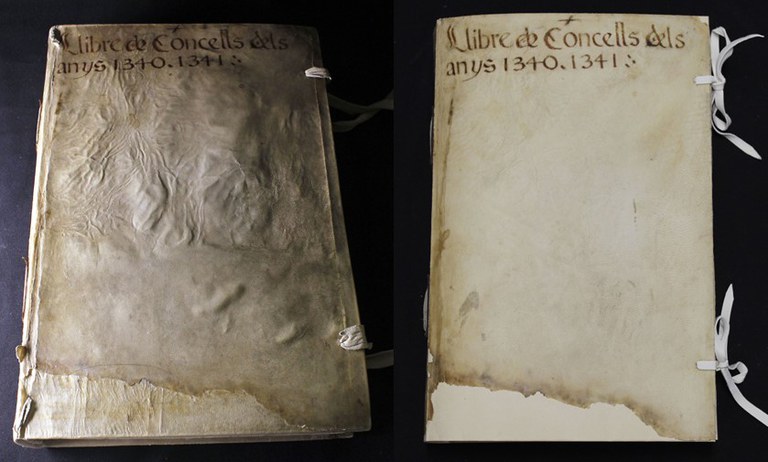 Llibre de Concells dels
anys 1340.1341:
Llibre de Concells dels
anys 1340.1341: